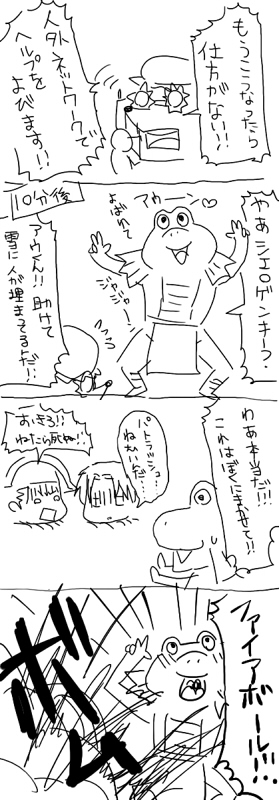 もうこうなったら
仕方がない!!
人外ネットワークで
ヘルプを
よびます!!
10分後
やあシエルゲンキー?
アウーン♡
よばれて
ジャジャーン
アウくん!!助けて
雪に人が埋まってるよだ!!
わあ本当だ!!!
これはぼくにまかせて!!
パトラッシュ…
ねむいんだ…
おきろ!!
ねたら死ぬ!!
ファイアボール!!
ボム